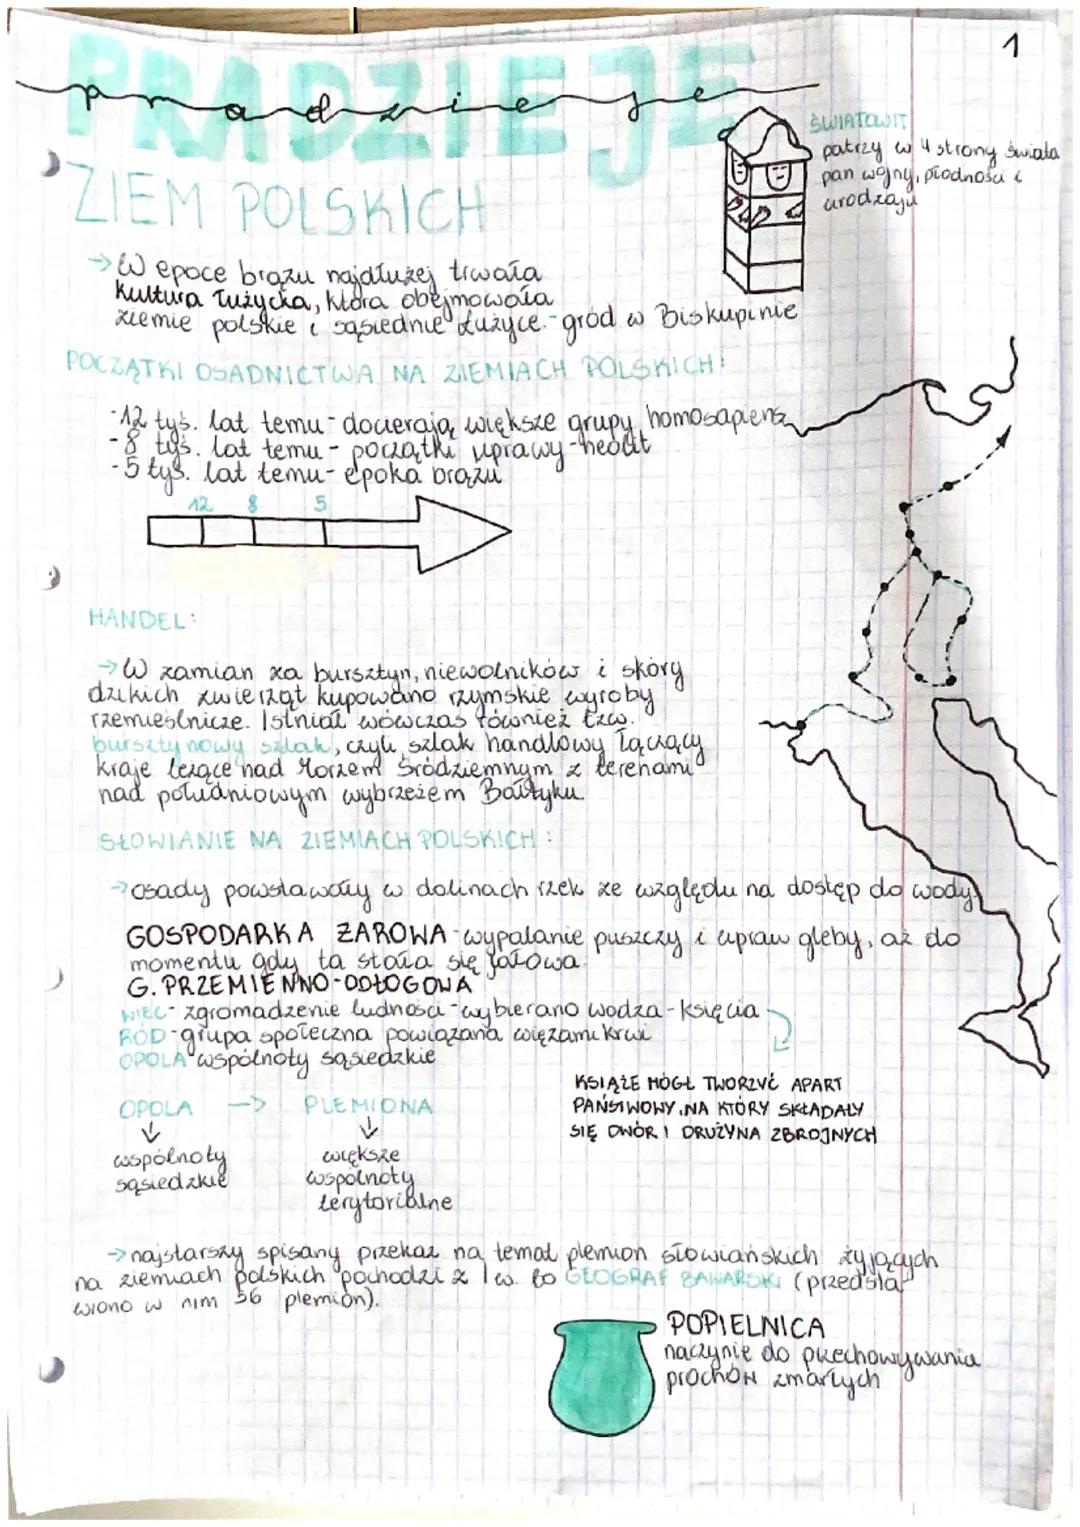 1
PRADZIEJE
pradzieje
ZIEM POLSKICH
ŚWIATOWIT
patrzy w 4 strony świata
pan wojny, płodności i
urodzaju
→ W epoce brązu najdłużej trwała
kultura łużycka, która obejmowała
ziemie polskie i sąsiednie Łużyce. - gród w Biskupinie
POCZĄTKI OSADNICTWA NA ZIEMIACH POLSKICH:
-12 tyś. lat temu - docierają większe grupy homosapiens
-8 tyś. lat temu - początki uprawy - neolit
-5 tyś. lat temu - epoka brązu
12 8 5
HANDEL:
→ W zamian za bursztyn, niewolników i skóry
dzikich zwierząt kupowano rzymskie wyroby
rzemieślnicze. Istniał wówczas również tzw.
bursztynowy szlak, czyli szlak handlowy łączący
kraje leżące nad Morzem Śródziemnym z terenami
nad południowym wybrzeżem Bałtyku.
SŁOWIANIE NA ZIEMIACH POLSKICH:
→ osady powstawały w dolinach rzek ze względu na dostęp do wody
GOSPODARKA ŻAROWA - wypalanie puszczy i upraw gleby, aż do
momentu gdy ta stała się jałowa.
G. PRZEMIENNO-ODŁOGOWA
WIEC - zgromadzenie ludności - wybierano wodza - księcia
RÓD - grupa społeczna powiązana więzami krwi
OPOLA wspólnoty sąsiedzkie
KSIĄŻE MÓGŁ TWORZYĆ APART
PAŃSTWOWY, NA KTÓRY SKŁADAŁY
SIĘ DWÓR I DRUŻYNA ZBROJNYCH
OPOLA → PLEMIONA
↓ ↓
wspólnoty większe
sąsiedzkie wspólnoty
terytorialne
→ najstarszy spisany przekaz na temat plemion słowiańskich żyjących
na ziemiach polskich pochodzi z I w. to GEOGRAF BAWARSKI (przedsta
wiono w nim 56 plemion).
POPIELNICA
naczynie do przechowywania
prochów zmarłych